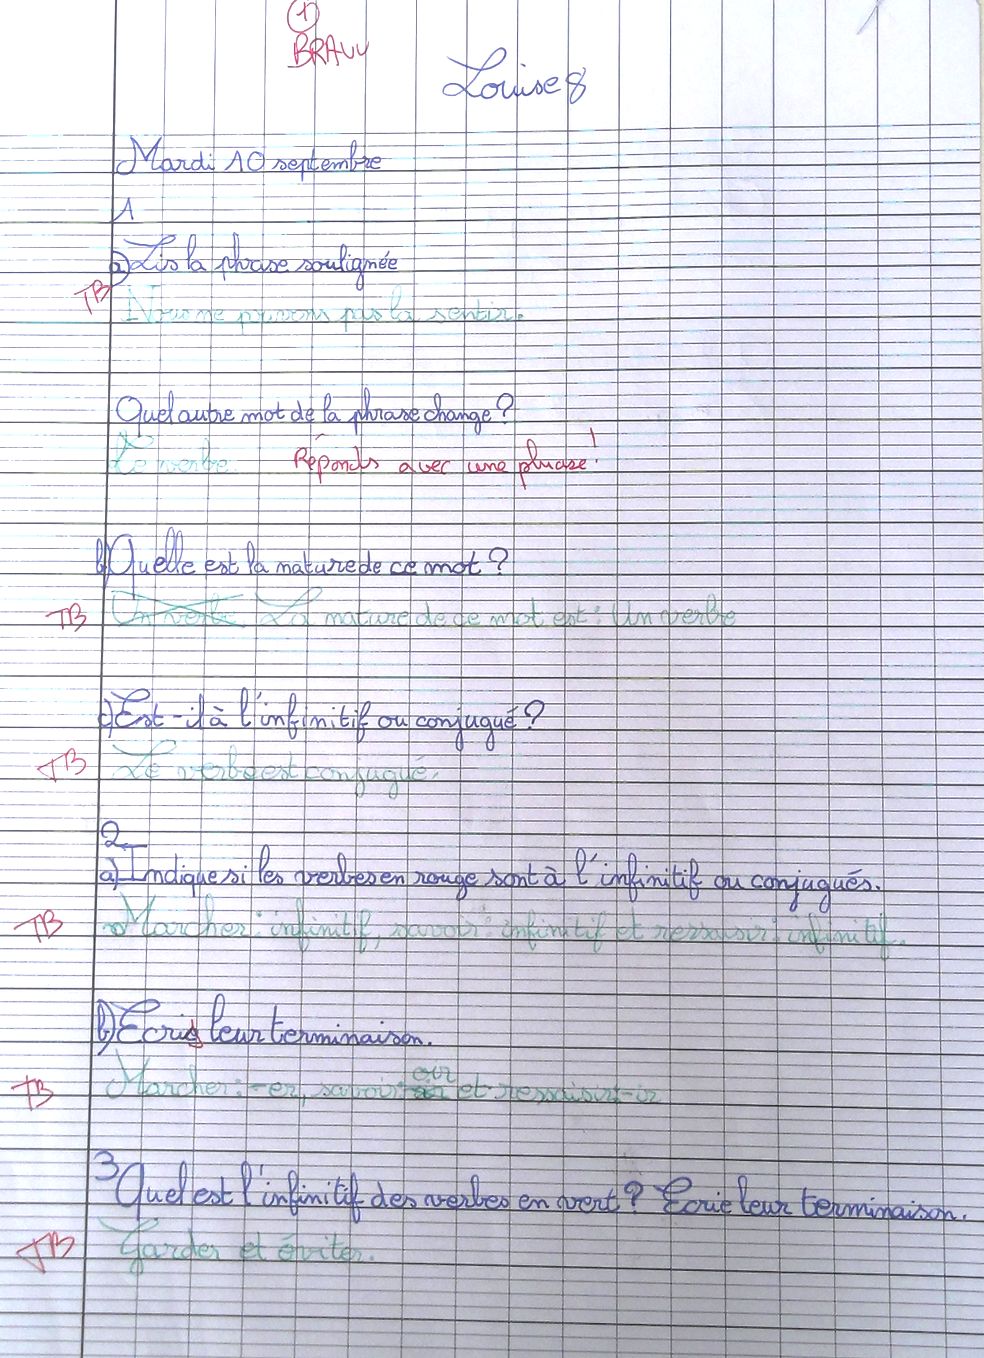 1
BRAVO
Louise 8
Mardi 10 septembre
1
a) Lis la phrase soulignée
TB
Nous ne pouvons pas la sentir.
Quel autre mot de la phrase change ?
Le verbe. Réponds avec une phrase !
b) Quelle est la nature de ce mot ?
TB Un verbe La nature de ce mot est : Un verbe
c) Est-il à l'infinitif ou conjugué ?
TB Le verbe est conjugué.
2
a) Indique si les verbes en rouge sont à l'infinitif ou conjugués.
TB Marcher : infinitif, savoir : infinitif et ressaisir : infinitif.
b) Ecris leur terminaison.
oir
TB Marcher : -er, savoir et ressaisir : -ir
3 Quel est l'infinitif des verbes en vert ? Ecrie leur terminaison.
TB Garder et éviter.